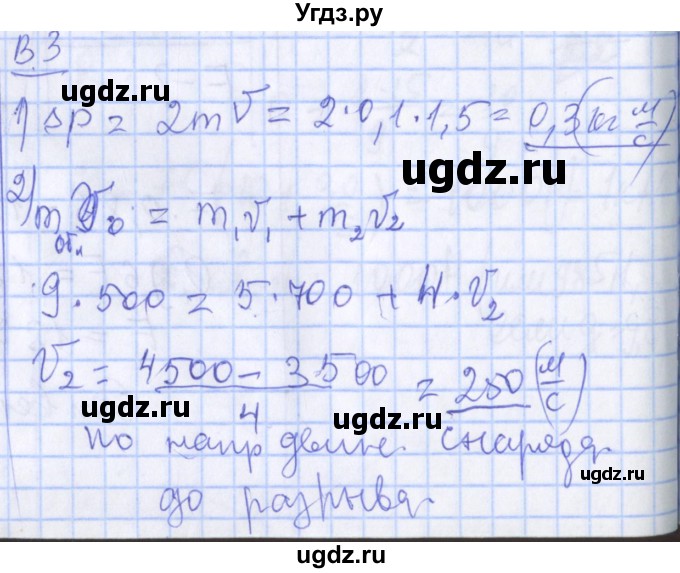 Угдз.ру
В.3
ugdz.ru
1) Δp = 2mV = 2·0,1·1,5 = 0,3(кг м/с)
ugdz.ru
2) m V₀ = m₁V₁ + m₂V₂
общ
9·500 = 5·700 + 4·V₂
ugdz.ru
V₂ = 4500 - 3500 / 4 = 250 (м/с)
ugdz.ru ugdz.ru
по напр движе. снаряда
ugdz.ru
до разрыва.
ugdz.ru
ugdz.ru